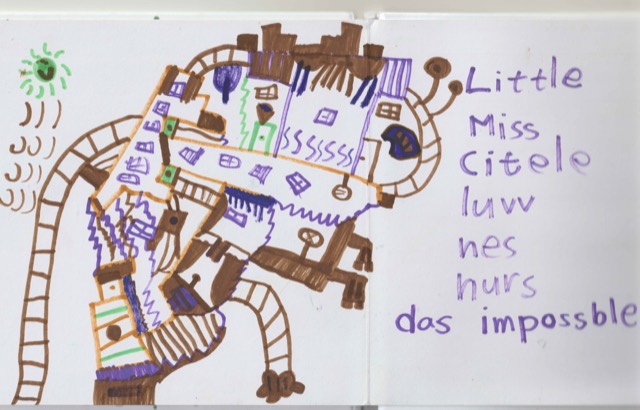 Little
Miss
Citele
luvv
nes
hurs
das impossble